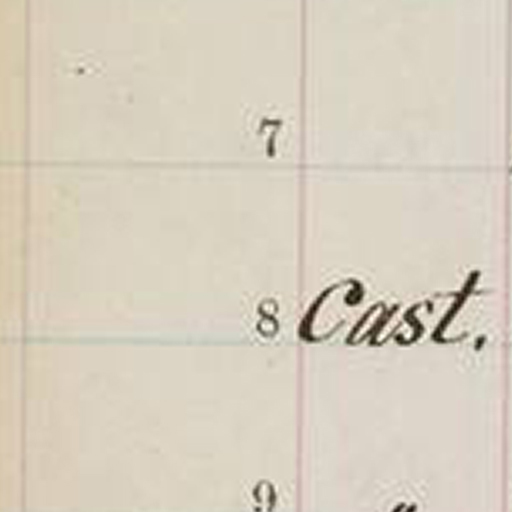 7
8 Cast.
9 "